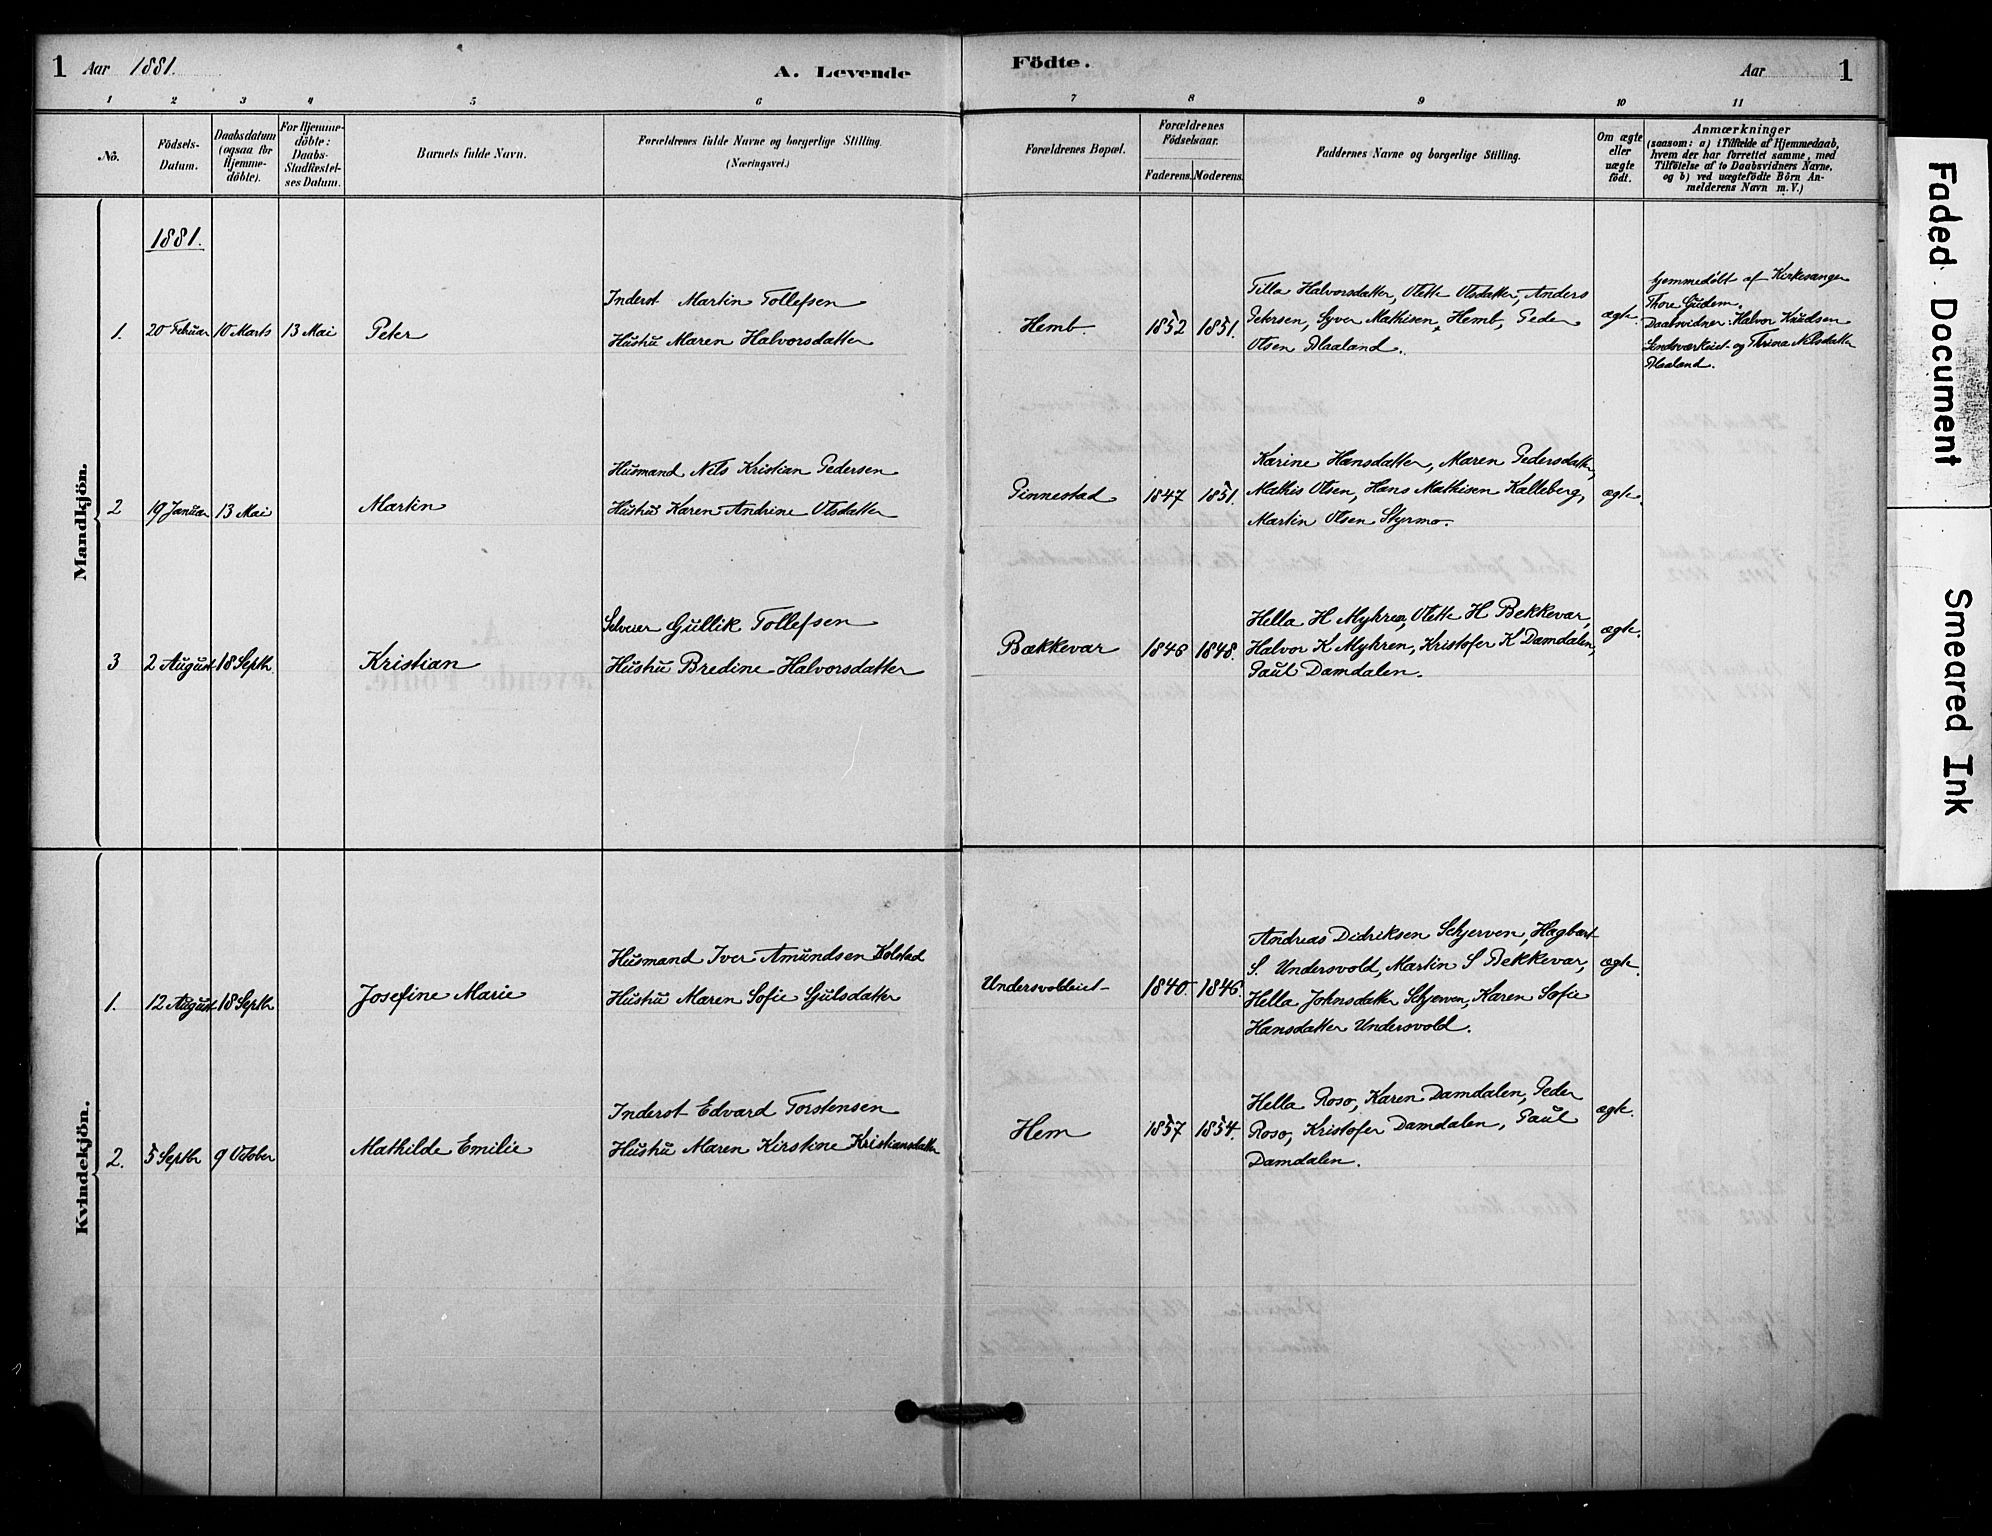 1 Aar 1881. A. Levende
Födte. Aar 1
1 2 3 4 5 6 7 8 9 10 11
No.
Födsels-
Datum.
Daabsdatum
(ogsaa for
Hjemme-
döbte).
For Hjemme-
döbte:
Daabs-
Stadfæstel-
ses Datum.
Barnets fulde Navn.
Forældrenes fulde Navne og borgerlige Stilling.
(Næringsvei.)
Forældrenes Bopæl.
Forældrenes
Födselsaar.
Faderens. Moderens.
Faddernes Navne og borgerlige Stilling.
Om ægte
eller
uægte
födt.
Anmærkninger
(saasom: a) i Tilfælde af Hjemmedaab,
hvem der har forrettet samme, med
Tilföielse af to Daabsvidners Navne,
og b) ved uægtefödte Börn An-
melderens Navn m. V.)
Mandkjön.
1881.
1. 20 Februar 10 Marts 13 Mai Peter
Inderst Martin Tollefsen
Hustru Maren Halvorsdatter
Hemb 1852 1851.
Tilla Halvorsdatter, Olette Olsdatter, Anders
Petersen, Syver Mathisen, Hemb, Peder
Olsen Blaaland.
ægte.
hjemmedøbt af Kirkesanger
Thore Gudem.
Daabsvidner: Halvor Knudsen
og Thrina Nilsdatter
Blaaland.
2 19 Januar 13 Mai Martin
Husmand Nils Kristian Pedersen
Hustru Karen Andrine Olsdatter
Pinnestad 1847 1851.
Karine Hansdatter, Maren Pedersdatter,
Mathis Olsen, Hans Mathisen Kalleberg,
Martin Olsen Styrmo.
ægte.
3 2 August 18 Septbr. Kristian
Selveier Gullik Tollefsen
Hustru Bredine Halvorsdatter
Bækkevar 1846 1848.
Hella H Myhren, Olette H Bekkevar,
Halvor K Myhren, Kristofer K Damdalen,
Paul Damdalen.
ægte.
Kvindekjön.
1. 12 August 18 Septbr Josefine Marie
Husmand Iver Amundsen Kolstad
Hustru Maren Sofie Gjulsdatter
Undersvoldeiet 1840. 1846.
Andreas Didriksen Schjerven, Hagbart
S. Undersvold, Martin S Bekkevar,
Hella Johnsdatter Schjerven, Karen Sofie
Hansdatter Undersvold.
ægte.
2. 5 Septbr 9 October Mathilde Emilie
Inderst Edvard Torstensen
Hustru Maren Kirstine Kristiansdatter
Hem 1857 1854.
Hella Roso, Karen Damdalen, Peder
Roso, Kristofer Damdalen, Paul
Damdalen.
ægte.
Faded Document
Smeared Ink